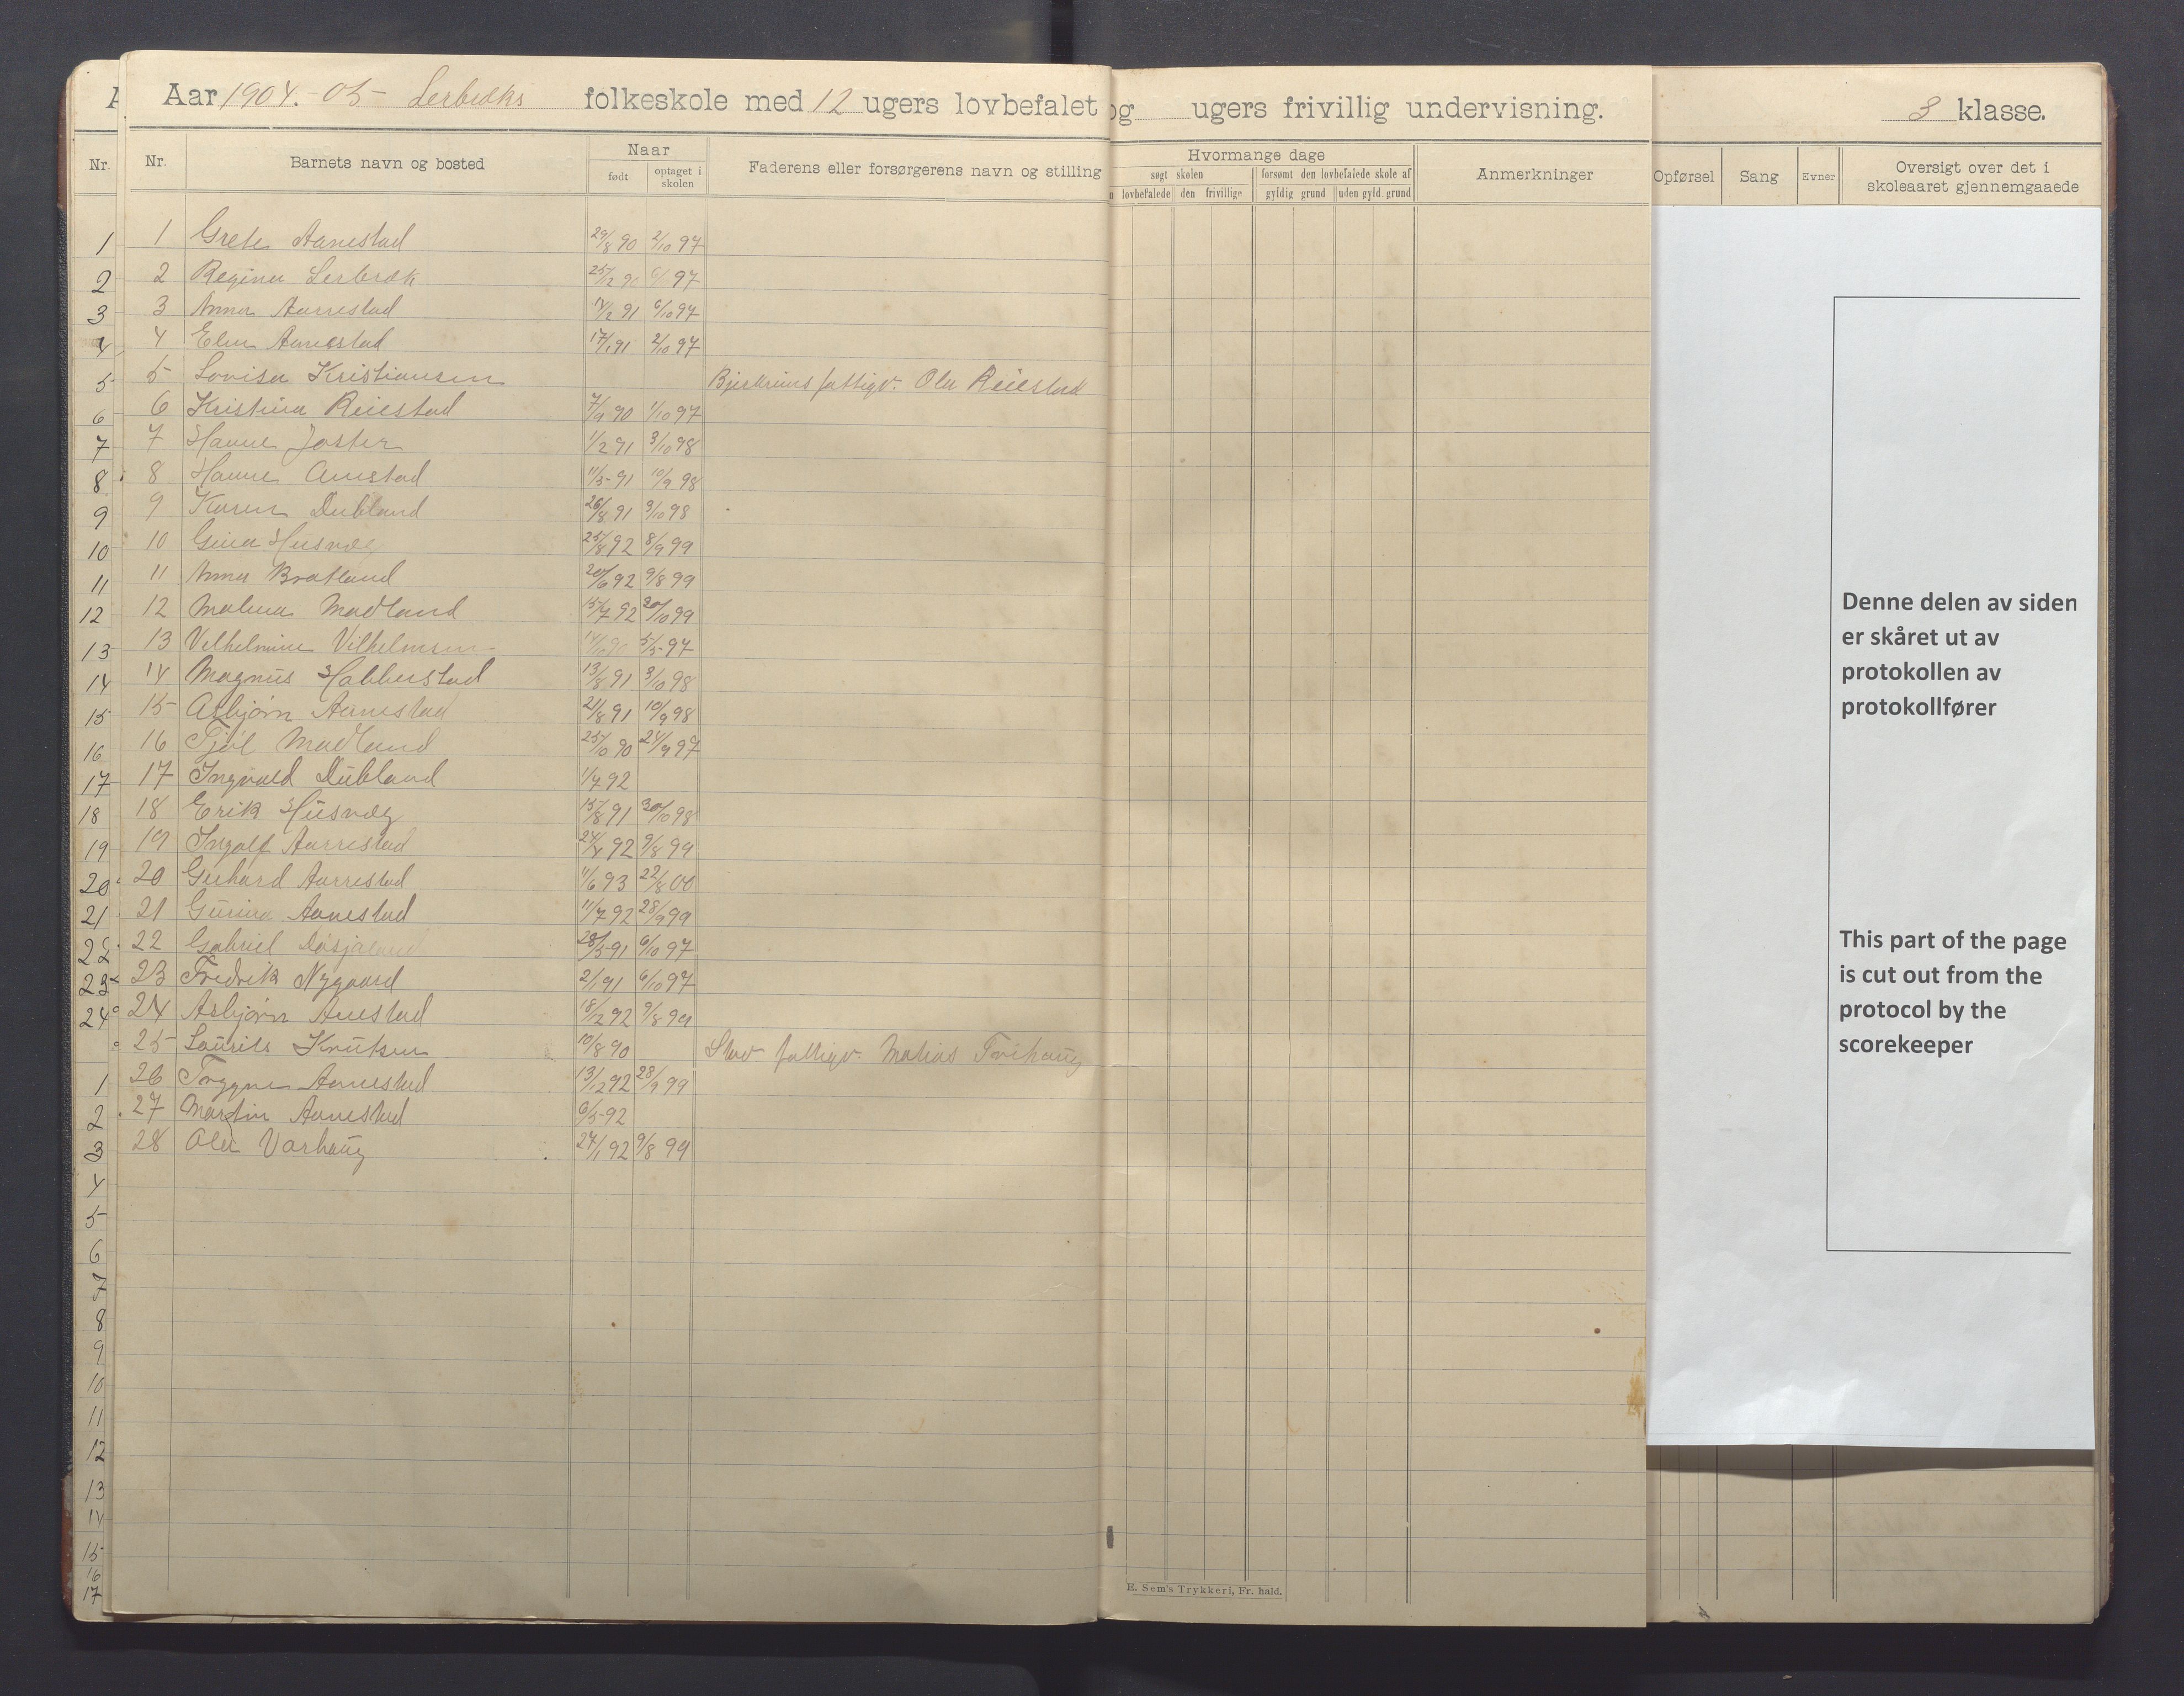 Aar 1904.-05- Lerbræks folkeskole med 12 ugers lovbefalet og ugers frivillig undervisning.
3 klasse.
Nr. Nr. Barnets navn og bosted Naar født optaget i skolen Faderens eller forsørgerens navn og stilling
Hvormange dage søgt skolen lovbefalede den frivillige forsømt den lovbefalede skole af gyldig grund uden gyld. grund Anmerkninger
Opførsel Sang Evner Oversigt over det i skoleaaret gjennemgaaede
1 1 Grete Aanestad 29/8 90 2/10 97
2 2 Regina Lerbræk 25/12 90 6/ 97
3 3 Anna Aarrestad /2 91 6/10 97
4 4 Elen Aanestad 17/1 91 2/10 97
5 5 Lovisa Kristiansen Bjerkreims fattigv. Ola Reiestad
6 6 Kristina Reiestad 7/9 90 1/10 97
7 7 Hanne Joster 1/2 91 3/10 98
8 8 Hanne Anestad 11/5 91 10/9 98
9 9 Karen Dubland 26/8 91 3/10 98
10 10 Gina Husvæg 25/8 92 8/9 99
11 11 Anna Bratland 20/6 92 9/8 99
12 12 Malena Madland 15/7 92 30/10 99
13 13 Vilhelmine Vilhelmsen 14/10 90 5/5 97
14 14 Magnus Habberstad 13/8 91 3/10 98
15 15 Asbjørn Aanestad 21/8 91 10/9 98
16 16 Tjøl Madland 25/10 90 24/9 97
17 17 Ingvald Dubland 1/7 92
18 18 Erik Husvæg 15/8 91 30/10 98
19 19 Ingolf Aarrestad 24/4 92 9/8 99
20 20 Gerhard Aarrestad 11/6 93 22/8 00
21 21 Gurina Aanestad 11/7 92 28/9 99
22 22 Gabriel 28/5 91 6/10 97
23 23 Fredrik Nygaard 2/1 91 6/10 97
24 24 Asbjørn Anestad 18/12 92 9/8 99
25 Laurits Knutsen 10/8 90 Stav. fattigv. Matias Tvihaug
1 26 Tryggve Aanestad 13/12 92 28/9 99
2 27 Martin Aanestad 6/5 92
3 28 Ola Varhaug 27/1 92 9/8 99
4
5
6
7
8
9
10
11
12
13
14
15
16
17
E. Sem's Trykkeri, Fr. hald.
Denne delen av siden
er skåret ut av
protokollen av
protokollfører
This part of the page
is cut out from the
protocol by the
scorekeeper